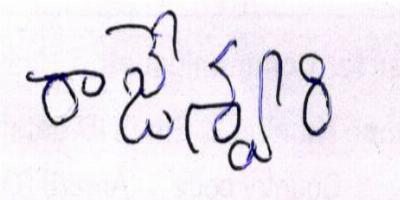 రాజేశ్వరి